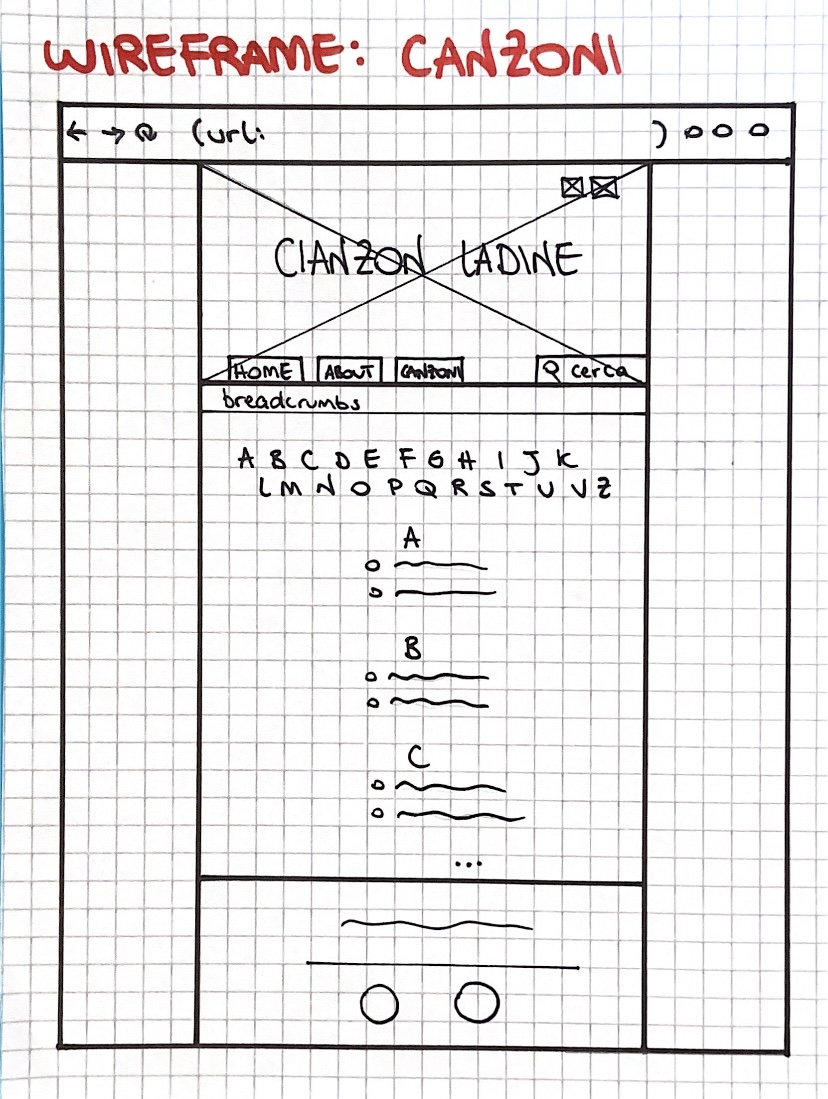 WIREFRAME: CANZONI
(url: )
CIANZON LADINE
HOME ABOUT CANZONI cerca
breadcrumbs
A B C D E F G H I J K
L M N O P Q R S T U V Z
A
B
C
...